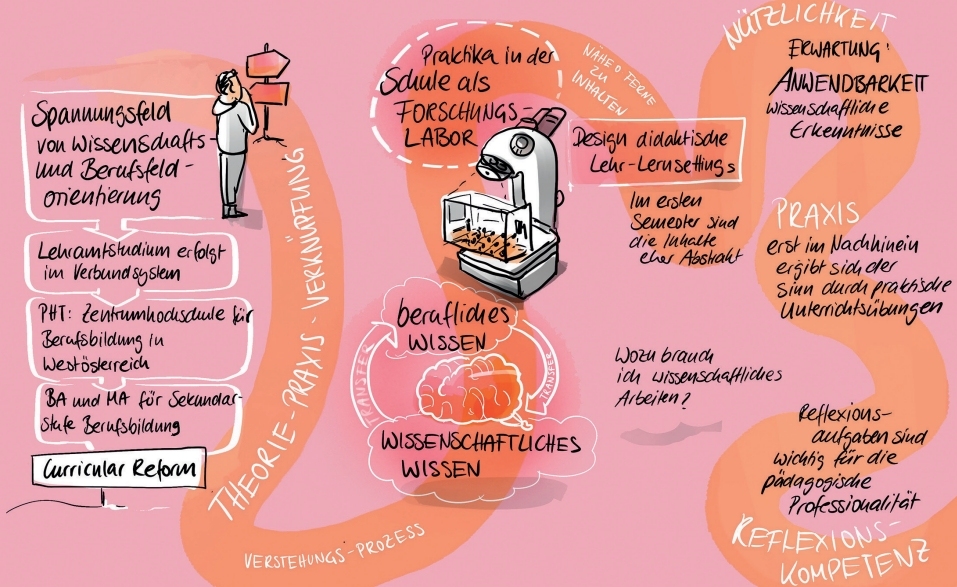 Spannungsfeld
von Wissenschafts-
und Berufsfeld-
orientierung
Lehramtstudium erfolgt
im Verbundsystem
PHT: Zentrumhochschule für
Berufsbildung in
Westösterreich
BA und MA für Sekundar-
stufe Berufsbildung
Curricular Reform
THEORIE-PRAXIS-VERKNÜPFUNG
VERSTEHUNGS-PROZESS
Praktika in der
Schule als
FORSCHUNGS-
LABOR
NÄHE FERNE
ZU
INHALTEN
Design didaktische
Lehr-Lernsettings
Im ersten
Semester sind
die Inhalte
eher Abstrakt
berufliches
WISSEN
TRANSFER
TRANSFER
WISSENSCHAFTLICHES
WISSEN
Wozu brauch
ich wissenschaftliches
Arbeiten?
NÜTZLICHKEIT
ERWARTUNG:
ANWENDBARKEIT
wissenschaftliche
Erkenntnisse
PRAXIS
erst im Nachhinein
ergibt sich der
Sinn durch praktische
Unterrichtsübungen
Reflexions-
aufgaben sind
wichtig für die
pädagogische
Professionalität
REFLEXIONS-
KOMPETENZ